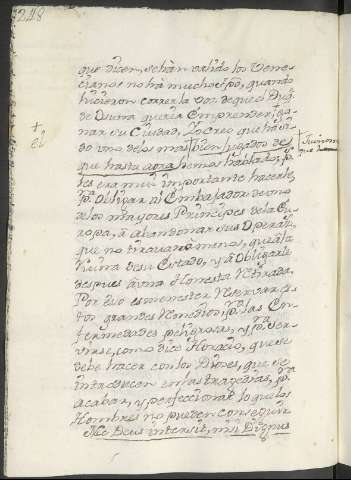 248
que dicen, se han valido los Vene-
cianos no há mucho tpõ, quando
hicieron correr la voz de que el Duq.
de Osuna queria Emprender, ga-
nar su Ciudad, Yo Creo que ha si-
do uno de los mas bien jugados de
que hasta aora hemos hablado, p.
les era mui importante hacerlo,
p.ª Obligar al Embajador de uno
de los mayores Principes de la Eu-
ropa, á abandonar sus
que no tiravan á menos, que á la
Ruina de su Estado, y á Obligarle
despues á una Honesta Retirada,
Por eso es menester Reservar es-
tos grandes Remedios p.ª las En-
fermedades peligrosas, y p.ª Ser-
virse, como dice Horacio, que se
debe hacer con los Dioses, que se
introducen en las tragedias, p.ª
acabar, y perfeccionar lo que los
Hombres no pueden conseguir
Nec Deus intersit, nisi Dignus
+
el